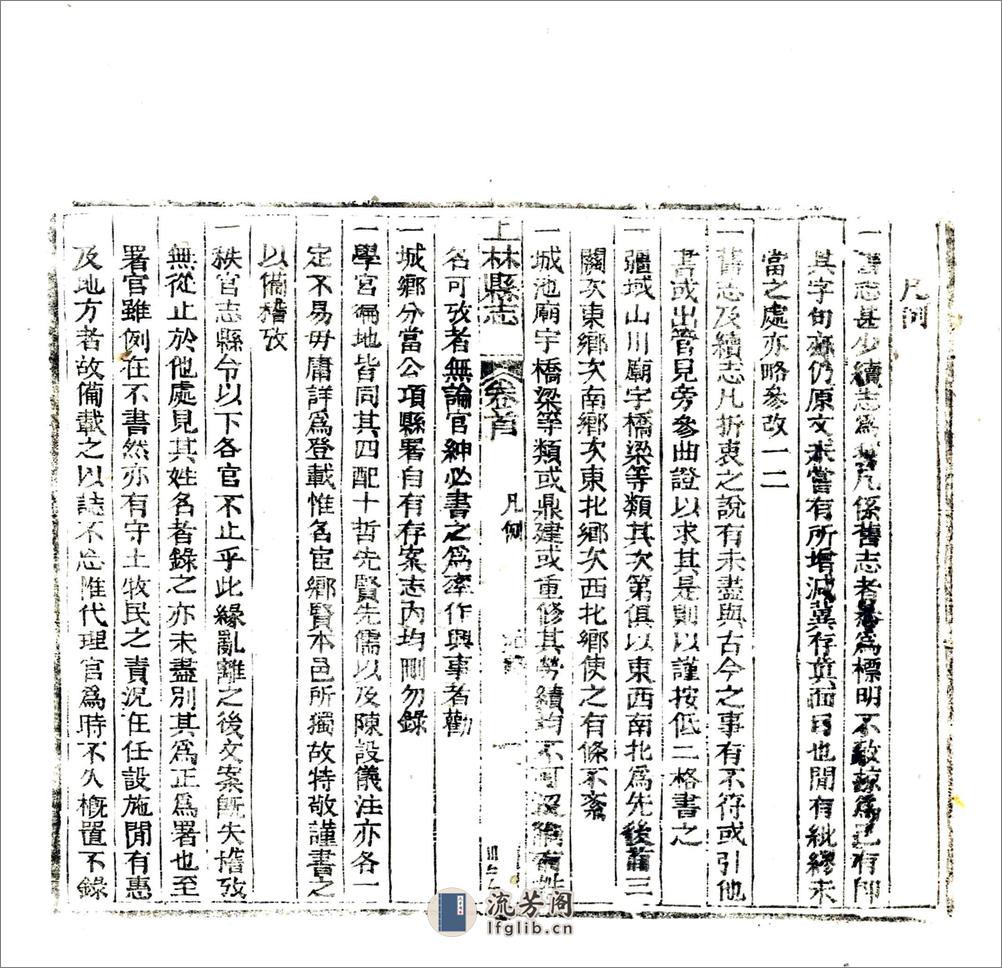 凡例
一舊志甚少續志爲多凡係舊志者悉爲標明不敢掠爲己有即
其字句亦仍原文未嘗有所增減冀存真面目也間有紕繆未
當之處亦略參改一二
一舊志及續志凡折衷之說有未盡與古今之事有不符或引他
書或出管見旁參曲證以求其是則以謹按低二格書之
一疆域山川廟宇橋梁等類其次第俱以東西南北爲先後首三
關次東鄉次南鄉次東北鄉次西北鄉使之有條不紊
一城池廟宇橋梁等類或鼎建或重修其勞績均不可沒稍有姓
上林縣志 卷首 凡例 一
名可攷者無論官紳必書之爲率作興事者勸
一城鄉分當公項縣署自有存案志內均刪勿錄
一學宮徧地皆同其四配十哲先賢先儒以及陳設儀注亦各一
定不易毋庸詳爲登載惟名宦鄉賢本邑所獨故特敬謹書之
以備稽攷
一秩官志縣令以下各官不止乎此緣亂離之後文案既失稽攷
無從止於他處見其姓名者錄之亦未盡別其爲正爲署也至
署官雖例在不書然亦有守土牧民之責況在任設施間有惠
及地方者故備載之以誌不忘惟代理官爲時不久概置不錄
流芳閣
lfglib.cn